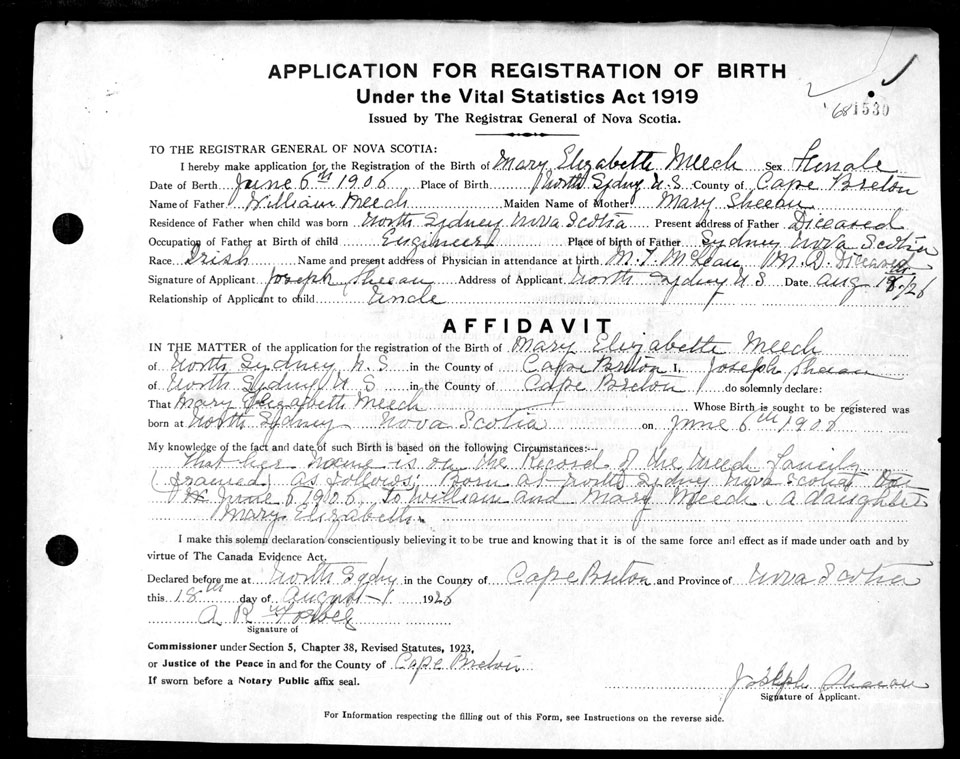 APPLICATION FOR REGISTRATION OF BIRTH
Under the Vital Statistics Act 1919
Issued by The Registrar General of Nova Scotia.
681530
TO THE REGISTRAR GENERAL OF NOVA SCOTIA:
I hereby make application for the Registration of the Birth of Mary Elizabeth Meech Sex Female
Date of Birth June 6th 1906 Place of Birth North Sydney N.S County of Cape Breton
Name of Father William Meech Maiden Name of Mother Mary Sheean
Residence of Father when child was born North Sydney Nova Scotia Present address of Father Diceased
Occupation of Father at Birth of child Engineer Place of birth of Father Sydney Nova Scotia
Race Irish Name and present address of Physician in attendance at birth M. T. McLean M D. Diceased
Signature of Applicant Joseph Sheean Address of Applicant North Sydney N S Date Aug 18th/26
Relationship of Applicant to child Uncle
AFFIDAVIT
IN THE MATTER of the application for the registration of the Birth of Mary Elizabeth Meech
of North Sydney N. S in the County of Cape Breton I, Joseph Sheean
of North Sydney N S in the County of Cape Breton do solemnly declare:
That Mary Elizabeth Meech Whose Birth is sought to be registered was
born at North Sydney Nova Scotia on June 6th 1906
My knowledge of the fact and date of such Birth is based on the following Circumstances:—
That her name is on the Record of the Meech Family
(framed) as follows; Born at North Sydney Nova Scotia On
June 6 1906 To William and Mary Meech. a daughter
Mary Elizabeth.
I make this solemn declaration conscientiously believing it to be true and knowing that it is of the same force and effect as if made under oath and by
virtue of The Canada Evidence Act.
Declared before me at North Sydney in the County of Cape Breton and Province of Nova Scotia
this 18th day of August 1926
A R
Signature of
Commissioner under Section 5, Chapter 38, Revised Statutes, 1923,
or Justice of the Peace in and for the County of Cape Breton
If sworn before a Notary Public affix seal.
Joseph Sheean
Signature of Applicant.
For Information respecting the filling out of this Form, see Instructions on the reverse side.